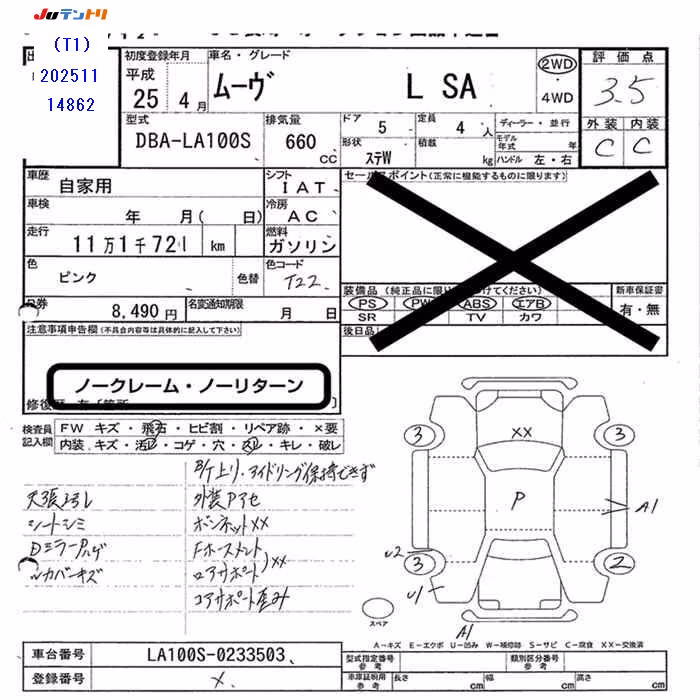 JUテントリ
(T1)
202511
14862
初度登録年月
平成
25 4月
車名・グレード
ムーヴ L SA
2WD
・
4WD
評価点
3.5
外装 内装
C C
型式
DBA-LA100S
排気量
660
CC
ドア
5
定員
4 人
ディーラー・並行
モデル年式 年
形状
ステW
積載
kg
ハンドル 左・右
車歴
自家用
シフト
IAT
セールスポイント(正常に機能するものに限ります)
車検
年 月( 日)
冷房
AC
走行
11万1千721 km
燃料
ガソリン
色
ピンク
色替
色コード
T22
装備品(純正品に限り
けてください)
新車保証書
PS PW ABS エアB
有・無
SR TV カワ
R券
8,490円
名変通知期限
月 日
後日品
注意事項申告欄(不具合内容等は具体的に記入して下さい)
ノークレーム・ノーリターン
修復歴
検査員
記入欄
FW キズ・飛石・ヒビ割・リペア跡・×要
内装 キズ・汚レ・コゲ・穴・スレ・キレ・破レ
B/T上リ・アイドリング保持できず
天張ヨゴレ
外装Pアセ
シートシミ
ボンネットXX
DミラーPハゲ
Fホースメント
XX
カバーキズ
ロアサポート
コアサポート歪み
XX
3
3
P
A1
U2
3
2
U1
A1
スペア
A-キズ E-エクボ U-凹み W-補修跡 S-サビ C-腐食 XX-交換済
車台番号
LA100S-0233503
登録番号
×
型式指定番号
参考
類別区分番号
参考
車庫証明用
参考
長さ cm 幅 cm 高さ cm